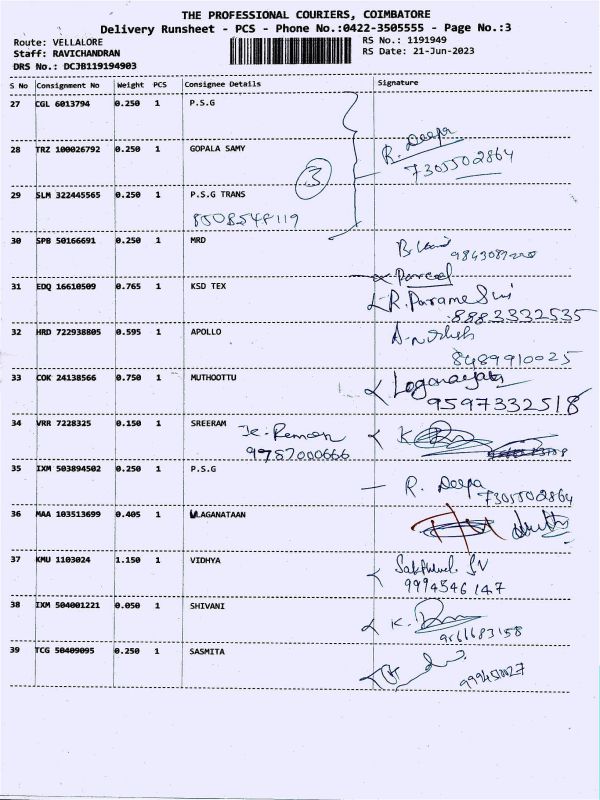 THE PROFESSIONAL COURIERS, COIMBATORE
Delivery Runsheet - PCS - Phone No.:0422-3505555 - Page No.:3
Route: VELLALORE
Staff: RAVICHANDRAN
DRS No.: DCJB119194903
RS No.: 1191949
RS Date: 21-Jun-2023
S No Consignment No Weight PCS Consignee Details Signature
27 CGL 6013794 0.250 1 P.S.G
28 TRZ 100026792 0.250 1 GOPALA SAMY
R. Deepa
7305502864
3
29 SLM 322445565 0.250 1 P.S.G TRANS
8508548119
30 SPB 50166691 0.250 1 MRD
Parcel
31 EDQ 16610509 0.765 1 KSD TEX
8883332535
32 HRD 722938805 0.595 1 APOLLO
8489910025
33 COK 24138566 0.750 1 MUTHOOTTU
9597332518
34 VRR 7228325 0.150 1 SREERAM
9787000666
K
35 IXM 503894502 0.250 1 P.S.G
R. Deepa
7305502864
36 MAA 103513699 0.405 1 ULAGANATAAN
37 KMU 1103024 1.150 1 VIDHYA
9994546147
38 IXM 504001221 0.050 1 SHIVANI
K.
9566683158
39 TCG 50409095 0.250 1 SASMITA